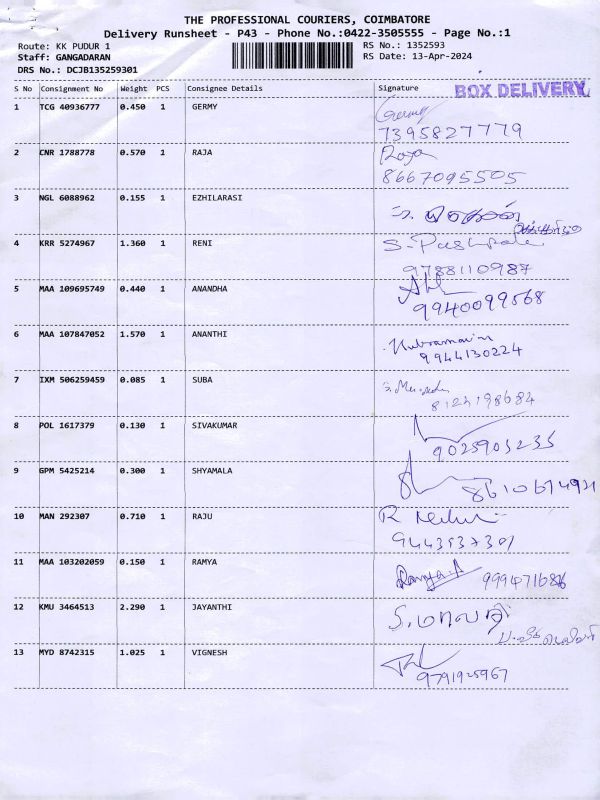 THE PROFESSIONAL COURIERS, COIMBATORE
Delivery Runsheet - P43 - Phone No.:0422-3505555 - Page No.:1
Route: KK PUDUR 1 RS No.: 1352593
Staff: GANGADARAN RS Date: 13-Apr-2024
DRS No.: DCJB135259301
S No Consignment No Weight PCS Consignee Details Signature BOX DELIVERY
1 TCG 40936777 0.450 1 GERMY Germy
7395827779
2 CNR 1788778 0.570 1 RAJA Raja
8667095505
3 NGL 6088962 0.155 1 EZHILARASI
4 KRR 5274967 1.360 1 RENI S. Pushpa
9788110987
5 MAA 109695749 0.440 1 ANANDHA
9940099568
6 MAA 107847052 1.570 1 ANANTHI
9944130224
7 IXM 506259459 0.085 1 SUBA
8123198684
8 POL 1617379 0.130 1 SIVAKUMAR
9025903235
9 GPM 5425214 0.300 1 SHYAMALA
10 MAN 292307 0.710 1 RAJU R
9443537301
11 MAA 103202059 0.150 1 RAMYA Ramya.A
12 KMU 3464513 2.290 1 JAYANTHI S. மாலதி
13 MYD 8742315 1.025 1 VIGNESH
9791925967